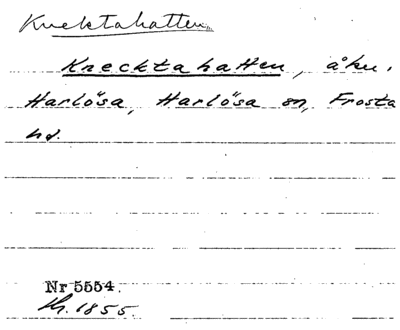 Knecktahatten
Knecktahatten, åku.
Harlösa, Harlösa sn, Frosta
hd.
Nr 5554.
Kh. 1855.